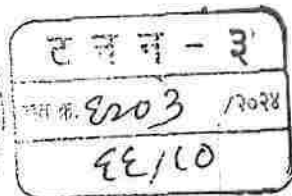 ट न न - ३
दस्त क्र. ६२०३ /२०२४
६६/८०